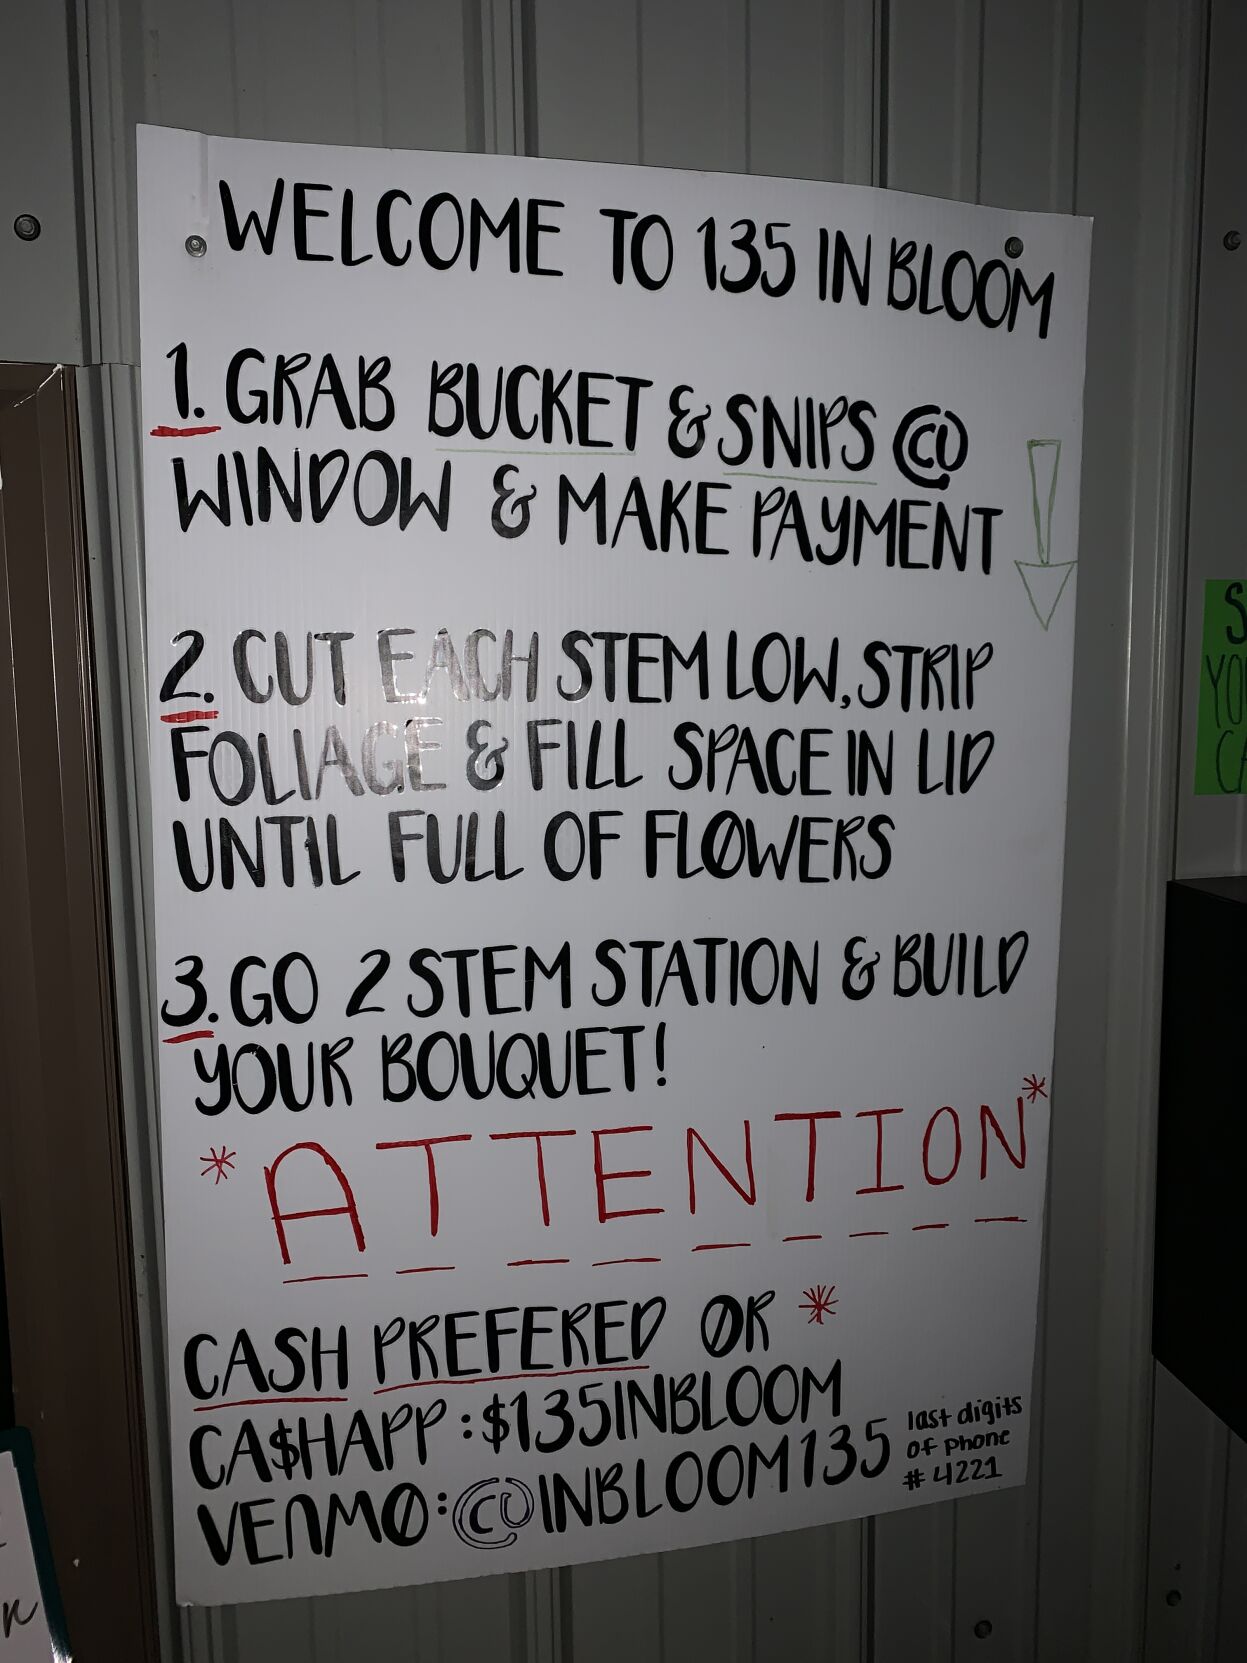 WELCOME TO 135 IN BLOOM
1. GRAB BUCKET & SNIPS @
WINDOW & MAKE PAYMENT
2. CUT EACH STEM LOW, STRIP
FOLIAGE & FILL SPACE IN LID
UNTIL FULL OF FLOWERS
3. GO 2 STEM STATION & BUILD
YOUR BOUQUET!
*ATTENTION*
CASH PREFERED OR *
CA$HAPP: $135INBLOOM
VENMO: @INBLOOM135
last digits
of phone
# 4221